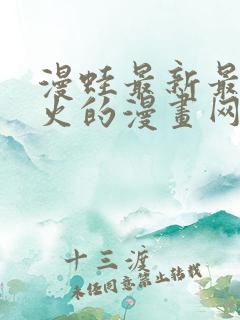 漫蛙最新最
火的漫畫网
十三渡
未经同意禁止转载